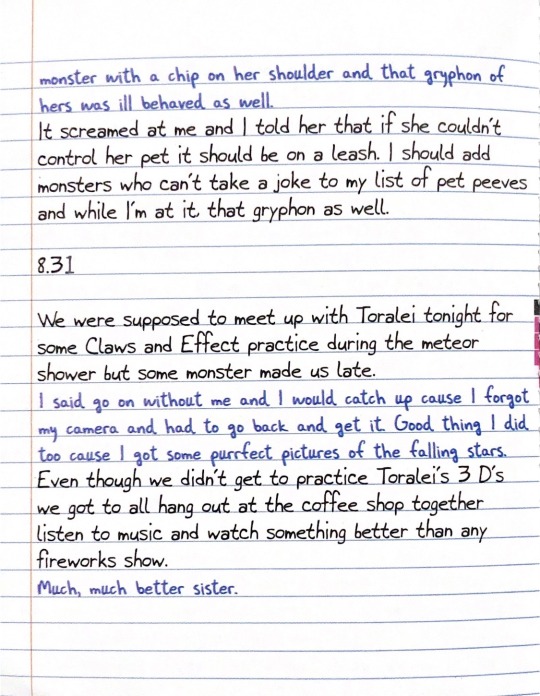 monster with a chip on her shoulder and that gryphon of
hers was ill behaved as well.
It screamed at me and I told her that if she couldn't
control her pet it should be on a leash. I should add
monsters who can't take a joke to my list of pet peeves
and while I'm at it, that gryphon as well.
8.31
We were supposed to meet up with Toralei tonight for
some Claws and Effect practice during the meteor
shower but some monster made us late.
I said go on without me and I would catch up cause I forgot
my camera and had to go back and get it. Good thing I did
too cause I got some purrfect pictures of the falling stars.
Even though we didn't get to practice Toralei's 3 D's
we got to all hang out at the coffee shop together
listen to music and watch something better than any
fireworks show.
Much, much better sister.